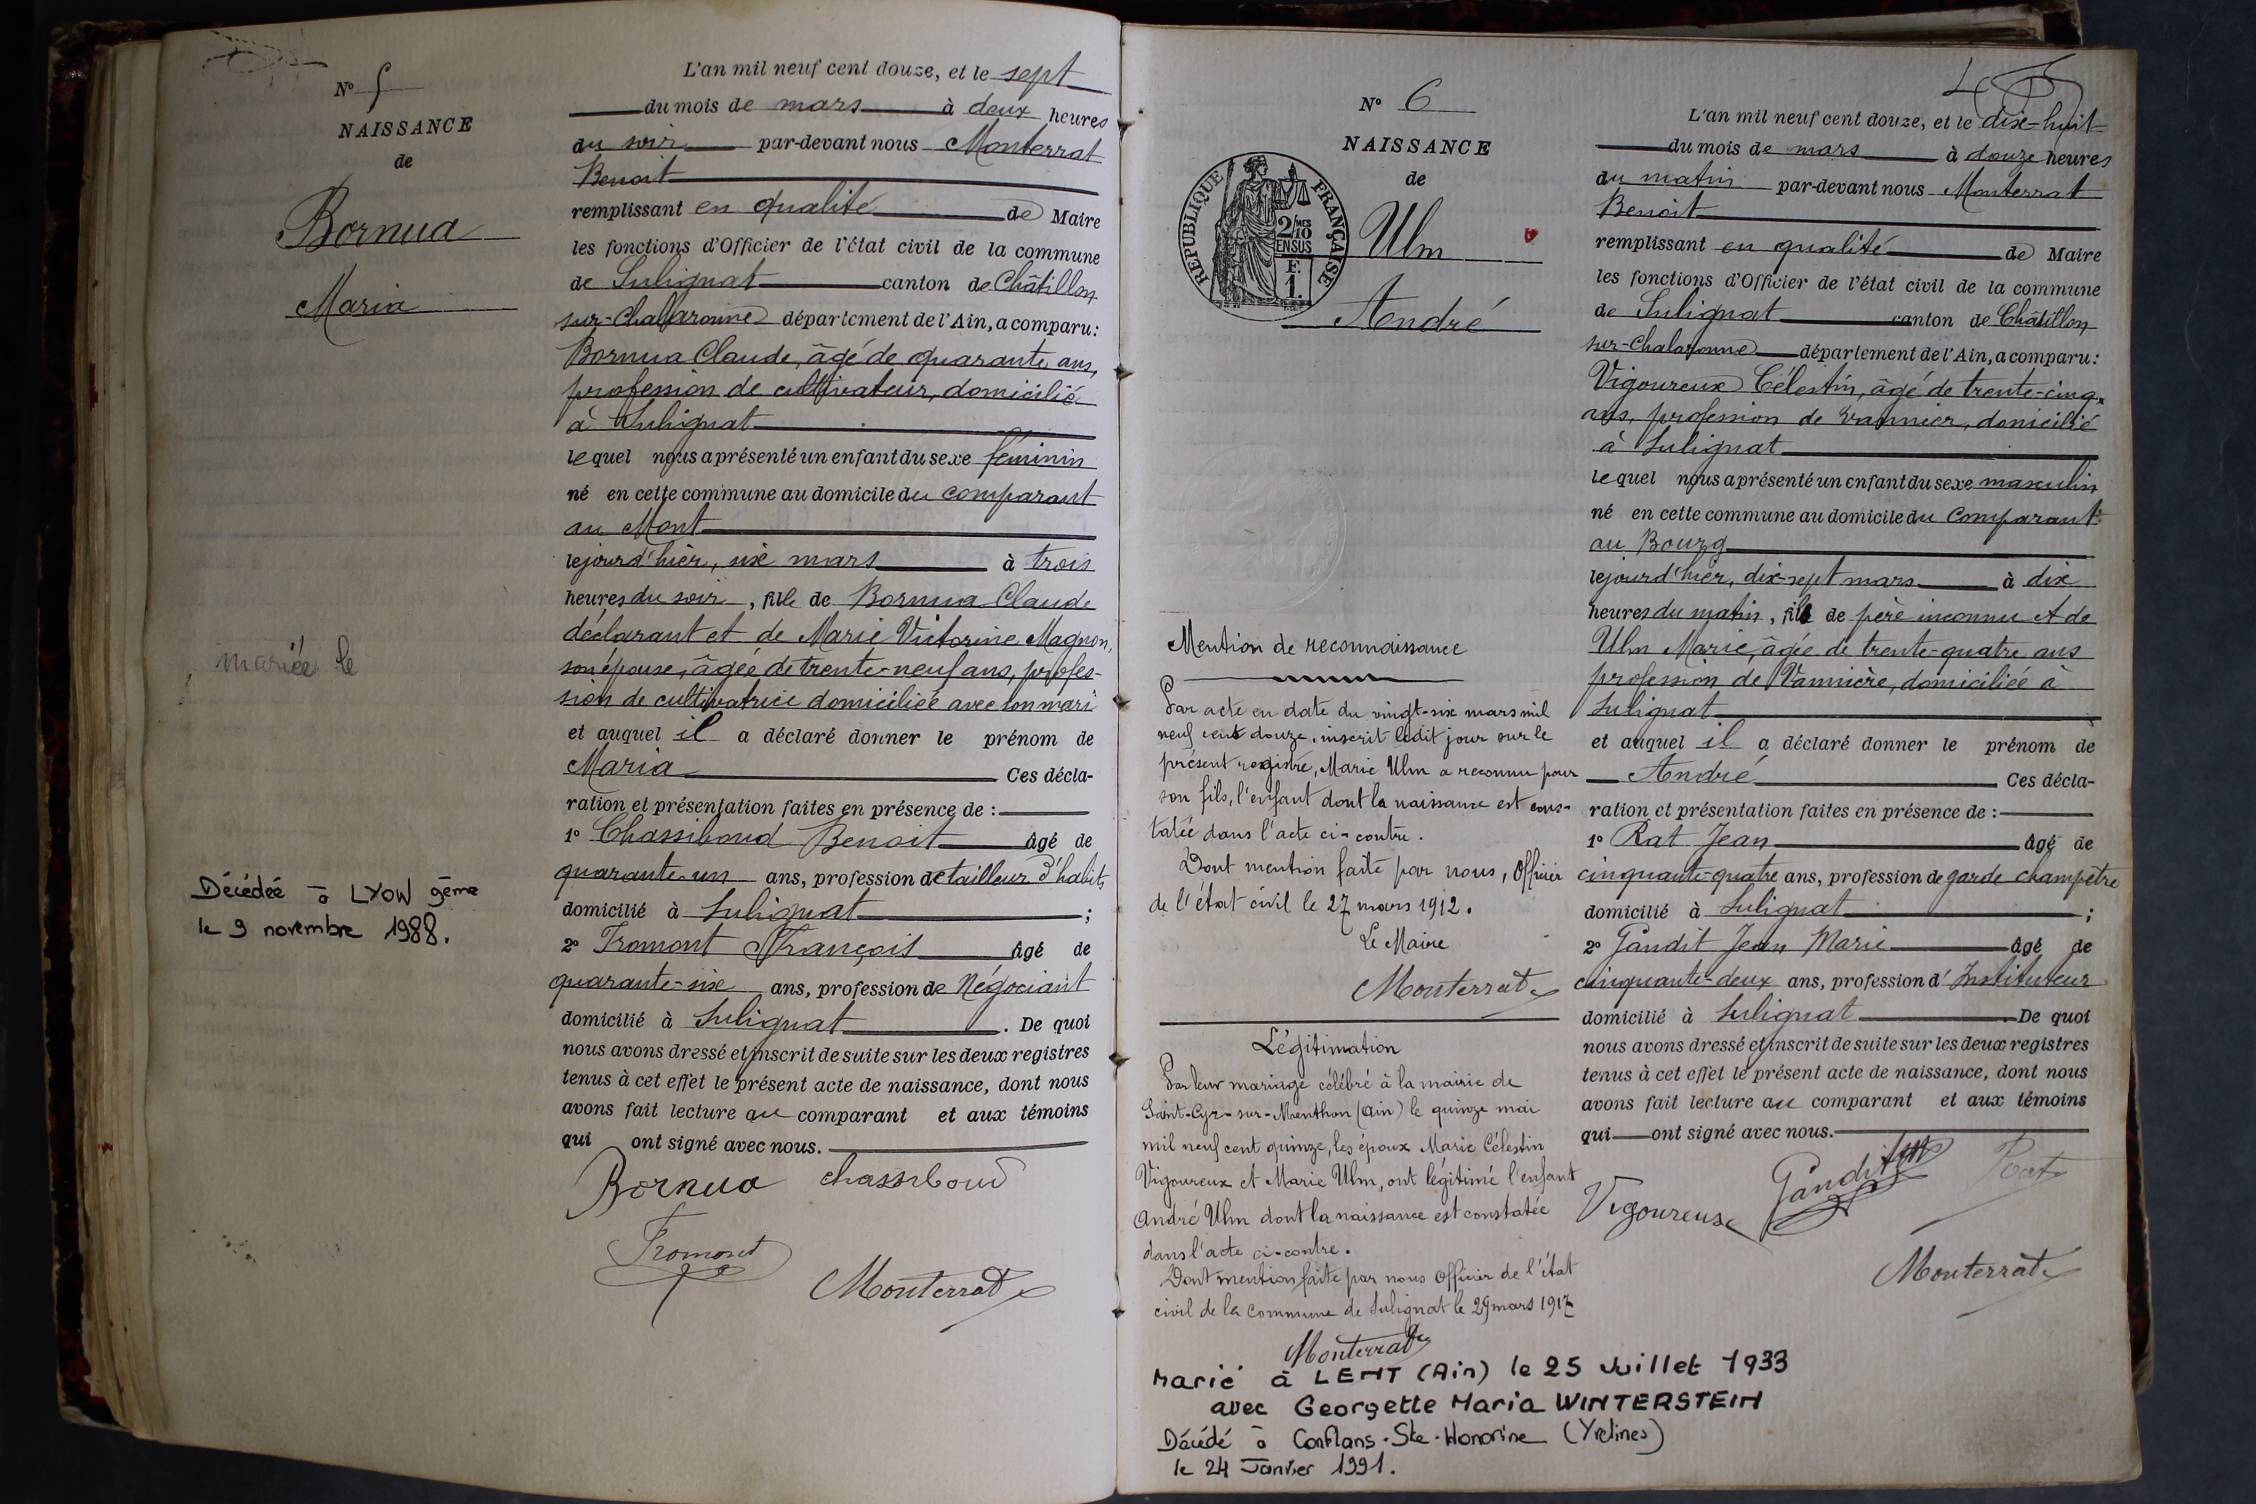 N° 5
NAISSANCE
de
Bornua
Maria
mariée le
Décédée à LYON 9ème
le 9 novembre 1988.
L'an mil neuf cent douze, et le sept
du mois de mars à deux heures
du soir par-devant nous Monterrat
Benoit
remplissant en qualité de Maire
les fonctions d'Officier de l'état civil de la commune
de Sulignat canton de Châtillon
sur-Chalaronne département de l'Ain, a comparu:
Bornua Claude, âgé de quarante ans,
profession de cultivateur, domicilié
à Sulignat
lequel nous a présenté un enfant du sexe féminin
né en cette commune au domicile du comparant
au Mont
le jour d'hier, six mars à trois
heures du soir, fille de Bornua Claude
déclarant et de Marie Victorine Magnon,
son épouse, âgée de trente-neuf ans, profes-
sion de cultivatrice domiciliée avec son mari
et auquel il a déclaré donner le prénom de
Maria Ces décla-
ration et présentation faites en présence de :
1° Chassiboud Benoit âgé de
quarante-un ans, profession de tailleur d'habits
domicilié à Sulignat ;
2° Fromont François âgé de
quarante-six ans, profession de Négociant
domicilié à Sulignat . De quoi
nous avons dressé et inscrit de suite sur les deux registres
tenus à cet effet le présent acte de naissance, dont nous
avons fait lecture au comparant et aux témoins
qui ont signé avec nous.
Bornua Chassiboud
Fromont
Monterrat
N° 6
NAISSANCE
de
RÉPUBLIQUE FRANÇAISE
2/10 MES
EN SUS
F.
1.
Ulm
André
Mention de reconnaissance
Par acte en date du vingt-six mars mil
neuf cent douze, inscrit ledit jour sur le
présent registre, Marie Ulm a reconnu pour
son fils, l'enfant dont la naissance est cons-
tatée dans l'acte ci-contre.
Dont mention faite par nous, Officier
de l'état civil le 27 mars 1912.
Le Maire
Monterrat
Légitimation
Par leur mariage célébré à la mairie de
Saint-Cyr-sur-Menthon (Ain) le quinze mai
mil neuf cent quinze, les époux Marie Célestin
Vigoureux et Marie Ulm, ont légitimé l'enfant
André Ulm dont la naissance est constatée
dans l'acte ci-contre.
Dont mention faite par nous Officier de l'état
civil de la commune de Sulignat le 29 mars 1917
Monterrat
Marié à LENT (Ain) le 25 Juillet 1933
avec Georgette Maria WINTERSTEIN
Décédé à Conflans-Ste-Honorine (Yvelines)
le 24 Janvier 1991.
L'an mil neuf cent douze, et le dix-huit
du mois de mars à douze heures
du matin par-devant nous Monterrat
Benoit
remplissant en qualité de Maire
les fonctions d'Officier de l'état civil de la commune
de Sulignat canton de Châtillon
sur-Chalaronne département de l'Ain, a comparu:
Vigoureux Célestin, âgé de trente-cinq
ans, profession de vannier, domicilié
à Sulignat
lequel nous a présenté un enfant du sexe masculin
né en cette commune au domicile du comparant
au Bourg
le jour d'hier, dix-sept mars à dix
heures du matin, fils de père inconnu et de
Ulm Marie, âgée de trente-quatre ans
profession de Vannière, domiciliée à
Sulignat
et auquel il a déclaré donner le prénom de
André Ces décla-
ration et présentation faites en présence de :
1° Rat Jean âgé de
cinquante-quatre ans, profession de garde champêtre
domicilié à Sulignat ;
2° Gandit Jean Marie âgé de
cinquante-deux ans, profession d'Instituteur
domicilié à Sulignat . De quoi
nous avons dressé et inscrit de suite sur les deux registres
tenus à cet effet le présent acte de naissance, dont nous
avons fait lecture au comparant et aux témoins
qui ont signé avec nous.
Vigoureux Gandit Rat
Monterrat